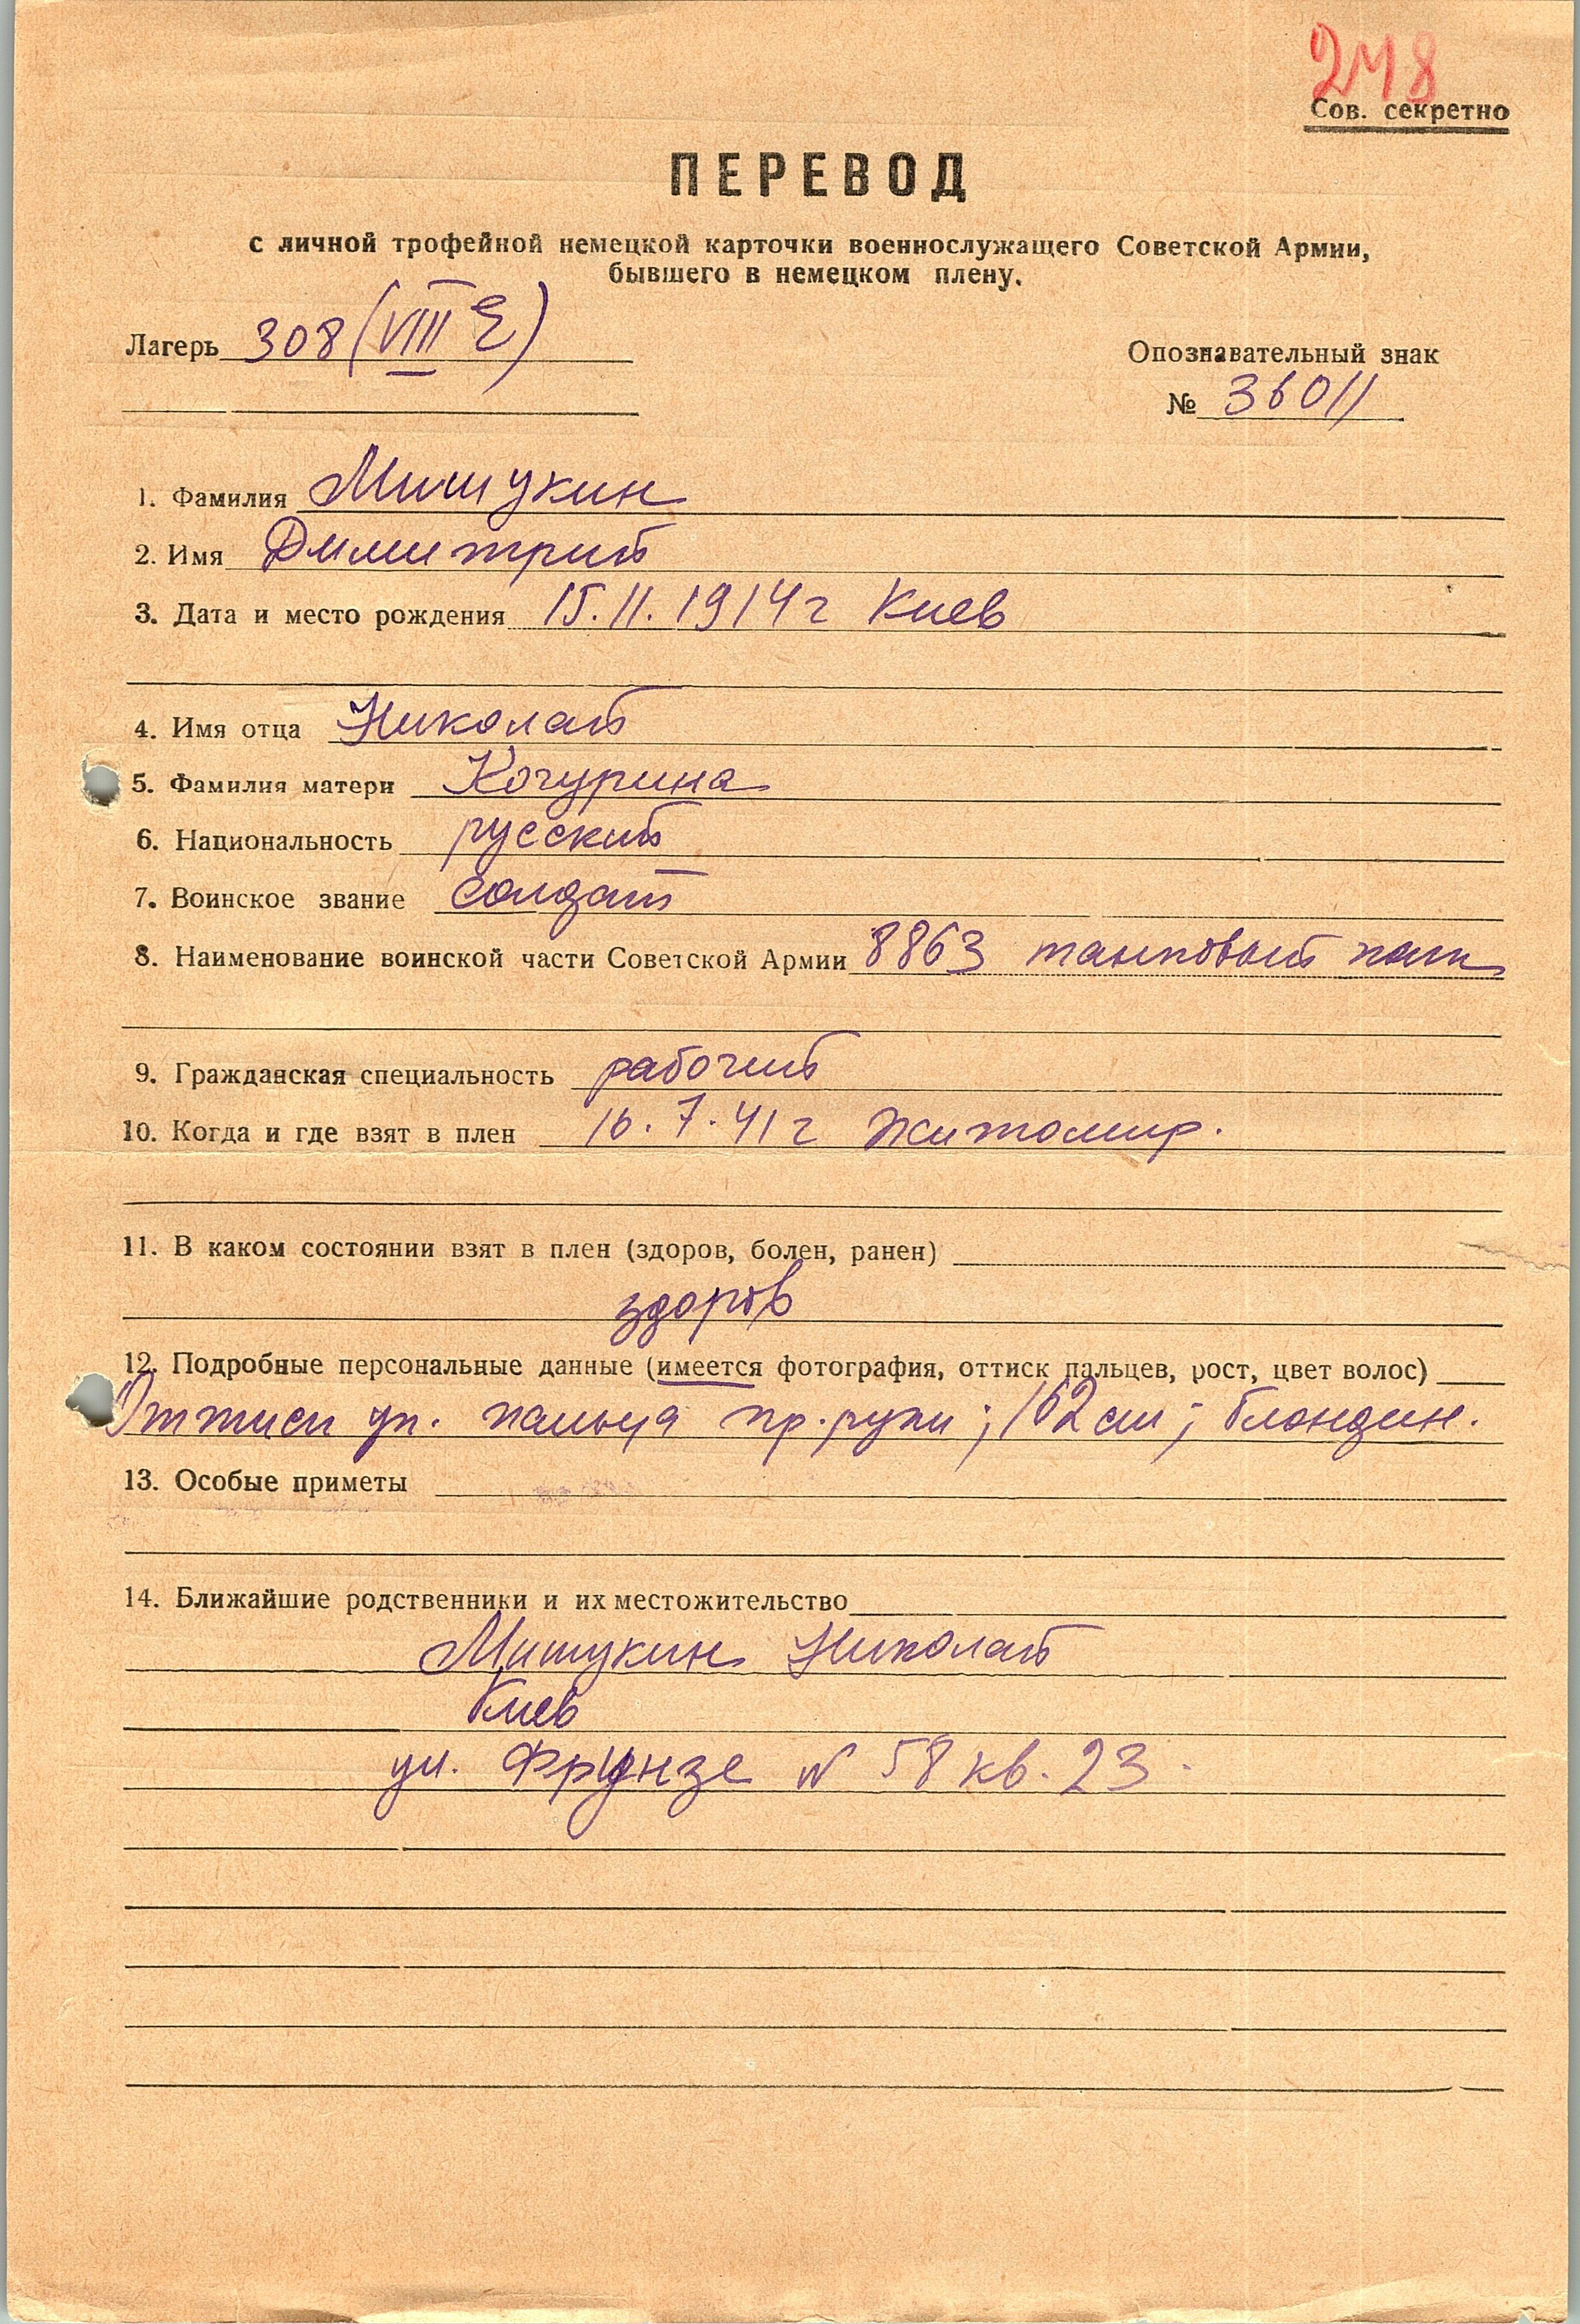 248
Сов. секретно
ПЕРЕВОД
с личной трофейной немецкой карточки военнослужащего Советской Армии,
бывшего в немецком плену.
Лагерь 308 (VIII E)
Опознавательный знак
№ 36011
1. Фамилия Мишукин
2. Имя Димитрий
3. Дата и место рождения 15.11.1914 г Киев
4. Имя отца Николай
5. Фамилия матери Кочурина
6. Национальность русский
7. Воинское звание солдат
8. Наименование воинской части Советской Армии 8863 танковый полк
9. Гражданская специальность рабочий
10. Когда и где взят в плен 16.7.41 г Житомир.
11. В каком состоянии взят в плен (здоров, болен, ранен)
здоров
12. Подробные персональные данные (имеется фотография, оттиск пальцев, рост, цвет волос)
Оттиск ук. пальца пр. руки; 162 см; блондин.
13. Особые приметы
14. Ближайшие родственники и их местожительство
Мишукин Николай
Киев
ул. Фрунзе N 58 кв. 23.